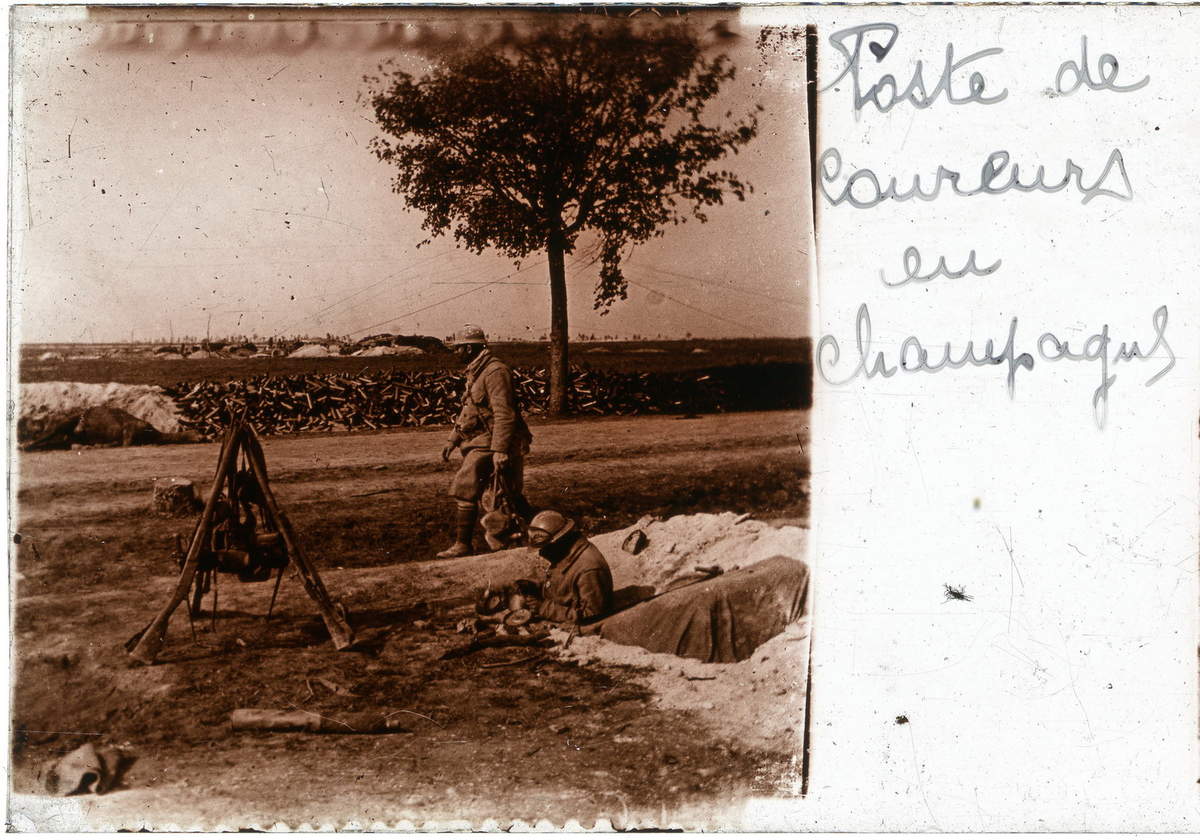 Poste de
coureurs
en
champagne